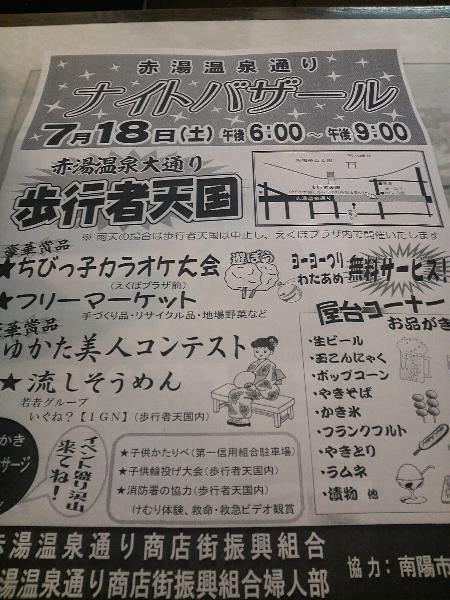 赤湯温泉通り
ナイトバザール
7月18日(土)午後6:00～午後9:00
赤湯温泉大通り
歩行者天国
※雨天の場合は歩行者天国は中止し、えくぼプラザ内で開催いたします
豪華賞品
★ちびっ子カラオケ大会
(えくぼプラザ前)
遊ぼう
ヨーヨーつり
わたあめ
無料サービス!
★フリーマーケット
手づくり品・リサイクル品・地場野菜など
豪華賞品
ゆかた美人コンテスト
★流しそうめん
若者グループ
いぐね?【IGN】(歩行者天国内)
屋台コーナー
お品がき
・生ビール
・玉こんにゃく
・ポップコーン
・やきそば
・かき氷
・フランクフルト
・やきとり
・ラムネ
・漬物 他
イベント盛り沢山
来てね!
★子供かたりべ(第一信用組合駐車場)
★子供輪投げ大会(歩行者天国内)
★消防署の協力(歩行者天国内)
けむり体験、救命・救急ビデオ観賞
赤湯温泉通り商店街振興組合
赤湯温泉通り商店街振興組合婦人部
協力:南陽市